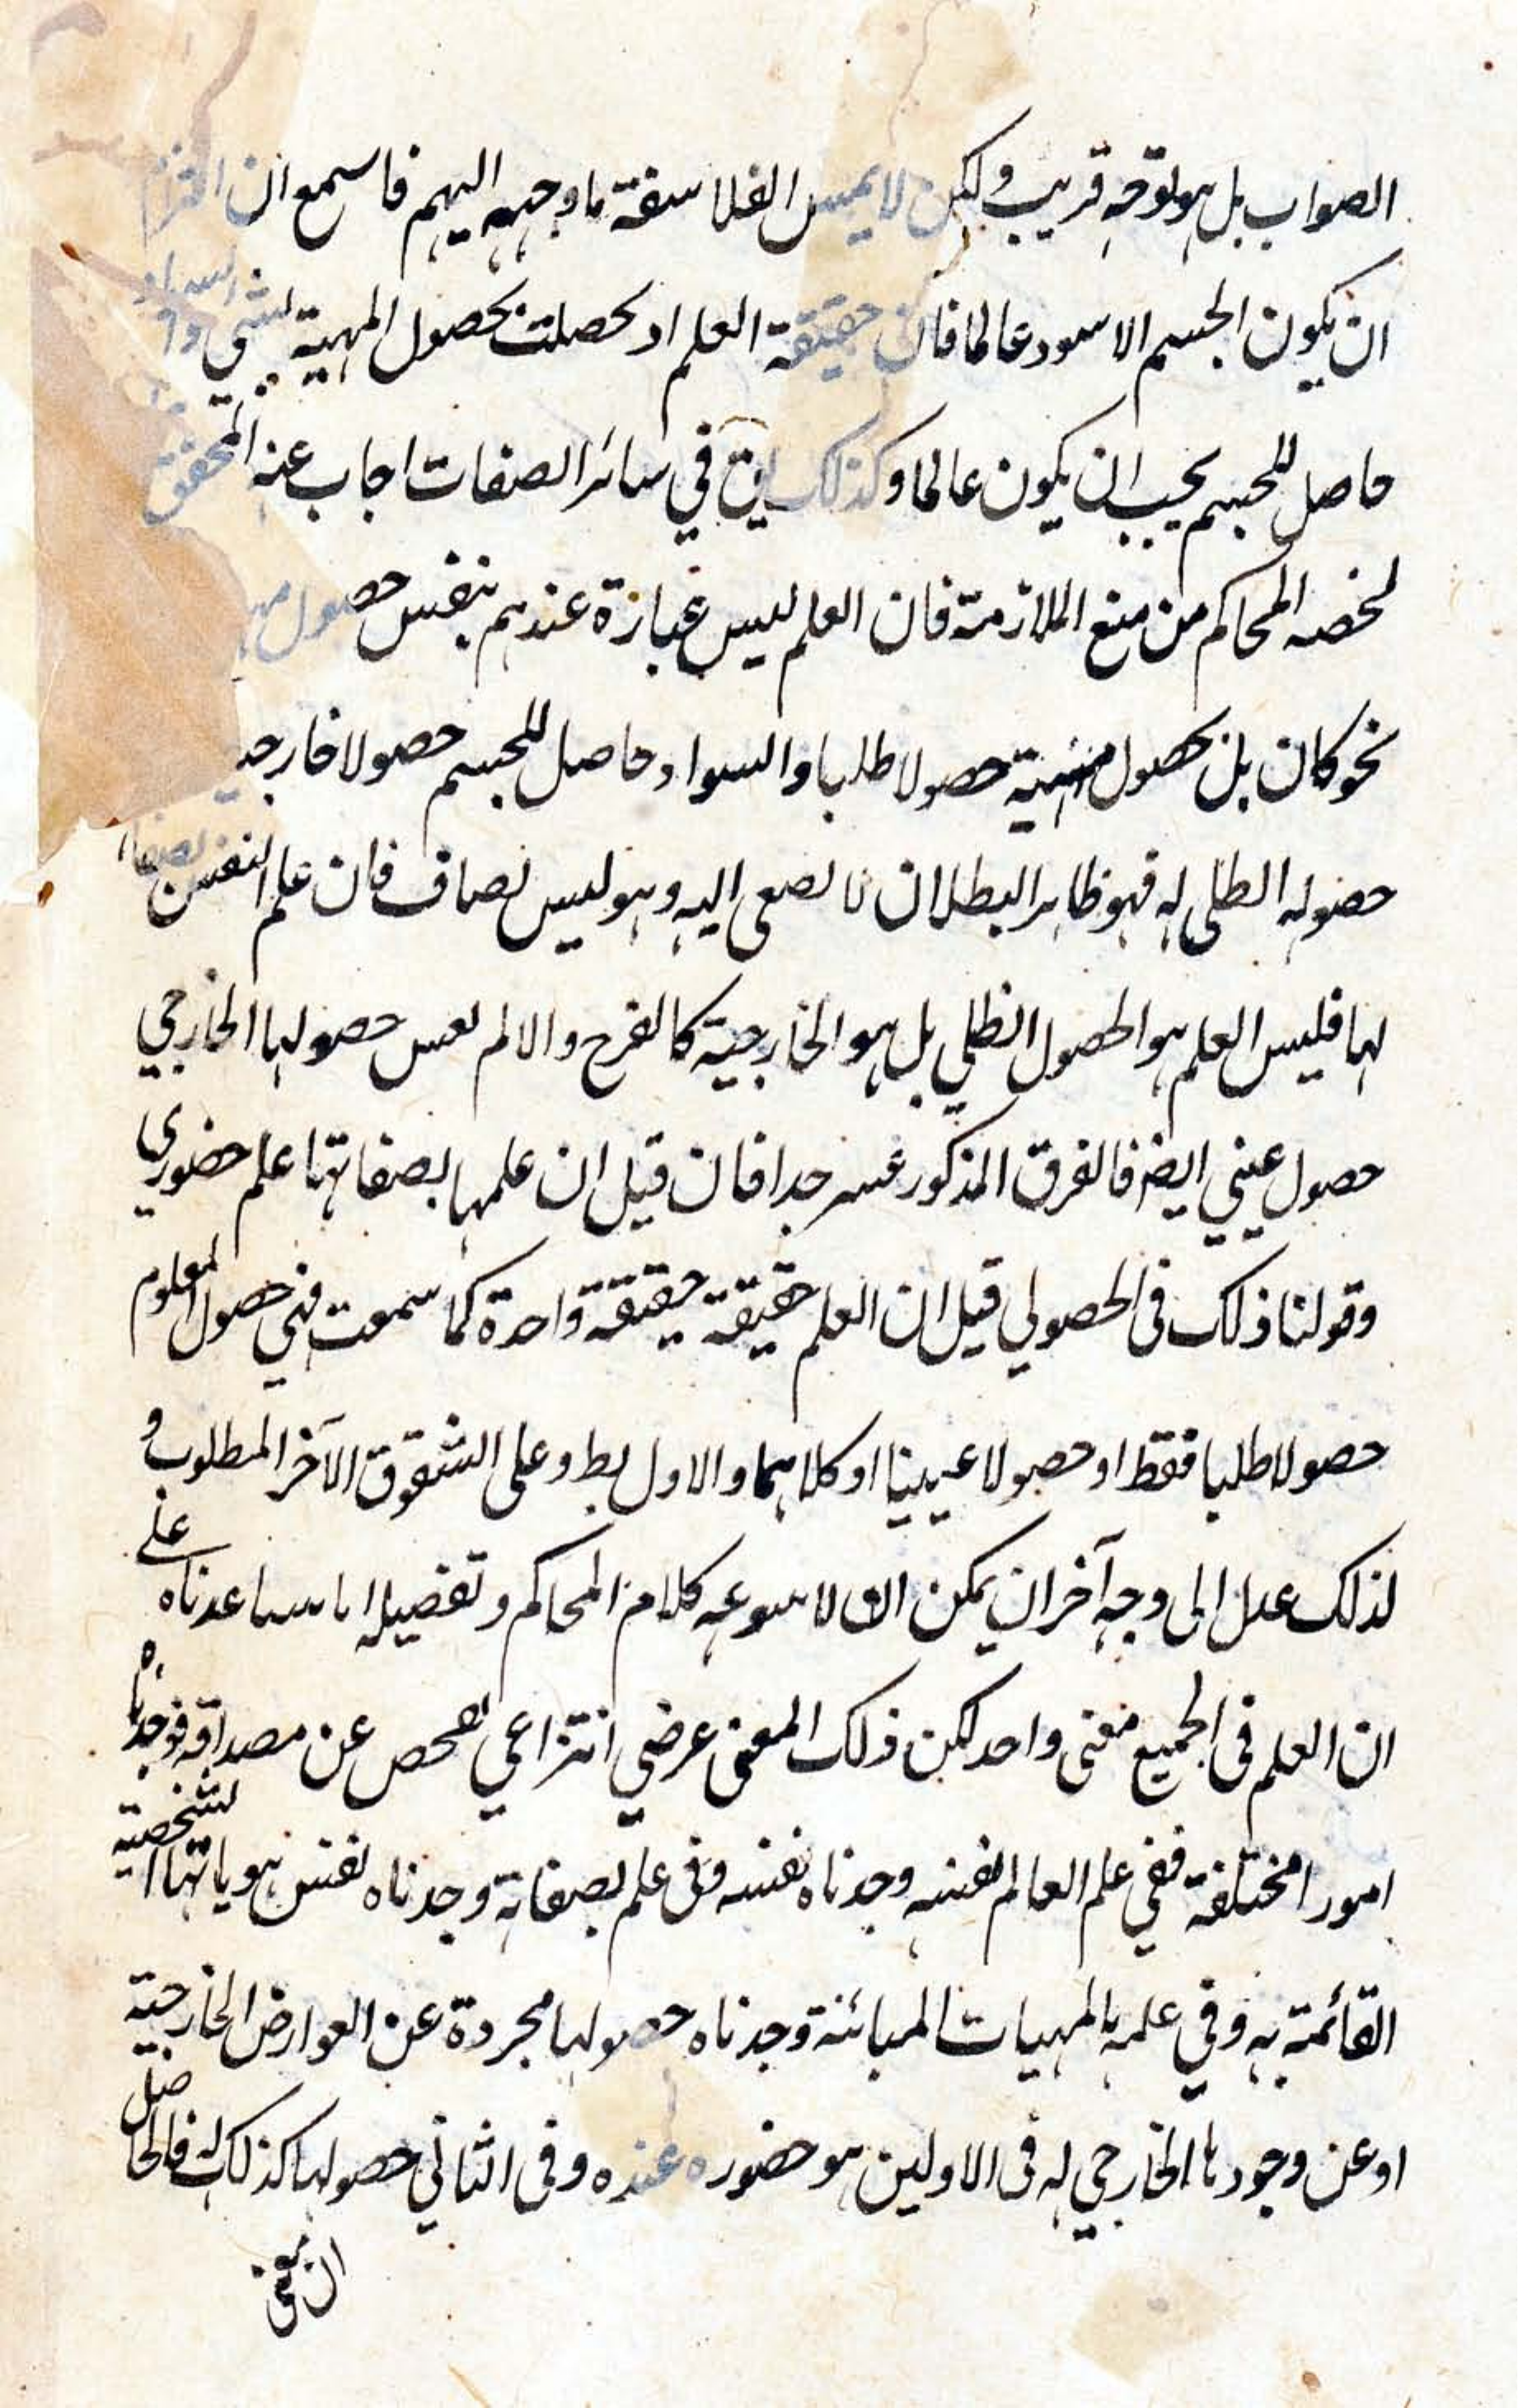 الصواب بل هو توجه قريب ولكن لا يمس الفلاسفة ما وجهه اليهم فاسمع ان
ان يكون الجسم الاسود عالما فان حقيقة العلم اذ حصلت بحصول المهية لشي
حاصل للجسم يجب ان يكون عالما وكذلك يق في سائر الصفات اجاب عنه المحقق
لخصه المحاكم من منع الملازمة فان العلم ليس عبارة عندهم بنفس حصول
نحو كان بل بحصول مهية حصولا ظليا والسواد حاصل للجسم حصولا خارجيا
حصوله الظلي له فهو ظاهر البطلان لا يصغى اليه وهو ليس بصاف فان علم النفس بصفاتها
لها فليس العلم هو الحصول الظلي بل هو الخارجية كالفرح والالم نفس حصولها الخارجي
حصول عيني ايضا فالفرق المذكور عسر جدا فان قيل ان علمها بصفاتها علم حضوري
وقولنا ذلك في الحصولي قيل ان العلم حقيقة حقيقة واحدة كما سمعت فهي حصول المعلوم
حصولا ظليا فقط او حصولا عينيا او كلاهما والاول بط وعلى الشقوق الآخر المطلوب و
لذلك عدل الى وجه آخر ان يمكن كلام المحاكم وتفصيله ساعدناه على
ان العلم في الجميع معنى واحد لكن ذلك المعنى عرضي انتزاعي نفحص عن مصداقه فوجدناه
امورا مختلفة ففي علم العالم لنفسه وجدناه نفسه وفي علم بصفاته وجدناه نفس هوياتها الشخصية
القائمة به وفي علمه بالمهيات المبائنة وجدناه حصولها مجردة عن العوارض الخارجية
او عن وجودها الخارجي له في الاولين هو حضوره عنده وفي الثاني حصولها كذلك له فالحاصل
ان معنى